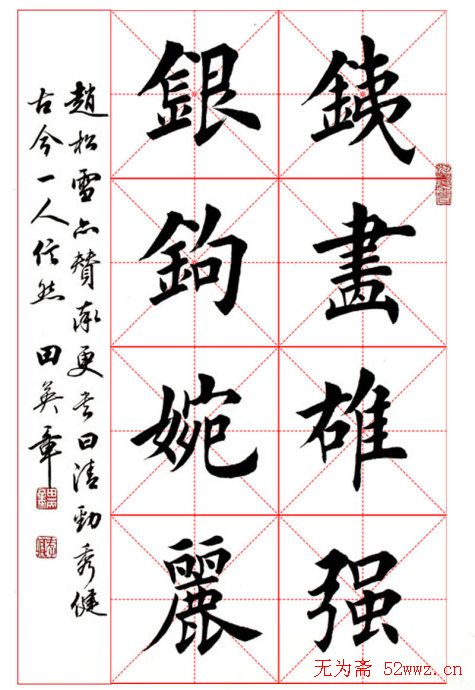 銕畫雄强
銀鉤婉麗
趙松雪亦贊率更書曰清勁秀健
古今一人信然 田英章
无为斋 52wwz.cn